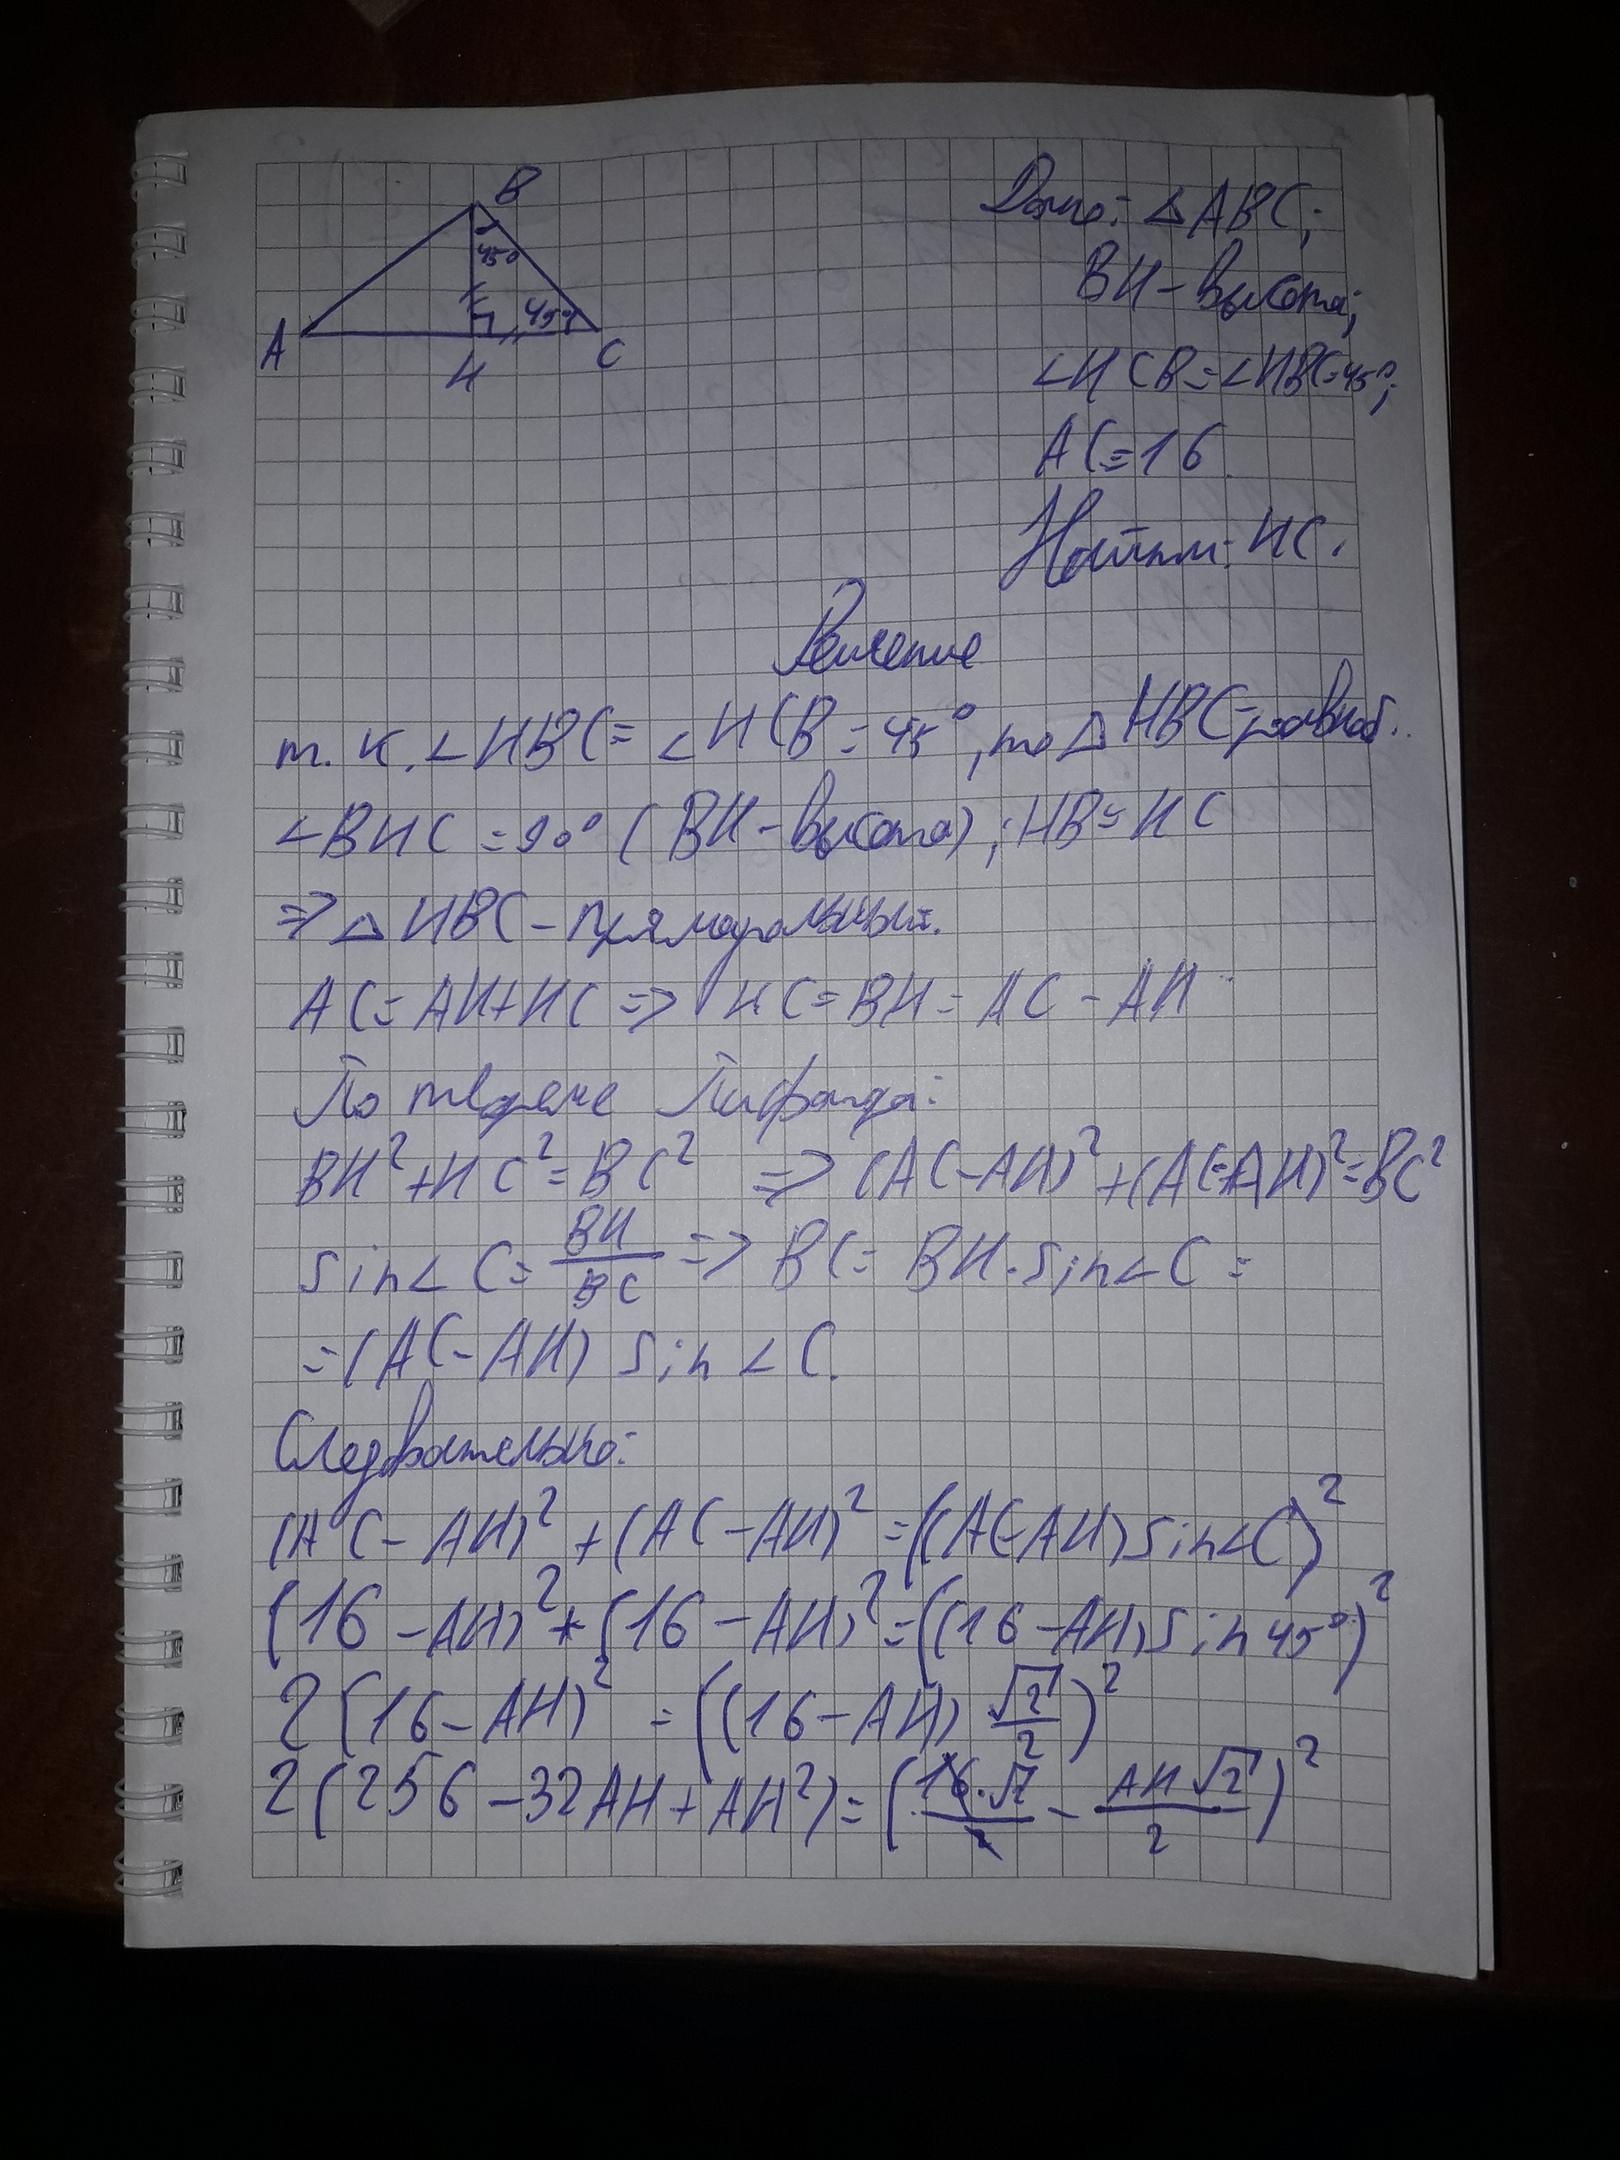 B
45°
45°
A
H
C
Дано: △ABC;
BH - высота;
∠HCB=∠HBC=45°;
AC=16.
Найти: HC.
Решение
т. к. ∠HBC = ∠HCB = 45°, то △HBC - равноб.
∠BHC = 90° (BH - высота); HB = HC
=> △HBC - прямоугольный.
AC = AH + HC => HC = BH = AC - AH
По теореме Пифагора:
BH² + HC² = BC² => (AC-AH)² + (AC-AH)² = BC²
sin∠C = BH/BC => BC = BH · sin∠C =
= (AC - AH) sin∠C.
Следвательно:
(AC - AH)² + (AC - AH)² = ((AC-AH) sin∠C)²
(16 - AH)² + (16 - AH)² = ((16 - AH) sin 45°)²
2(16 - AH)² = ((16 - AH) √2/2)²
2(256 - 32AH + AH²) = (16·√2/2 - AH√2/2)²